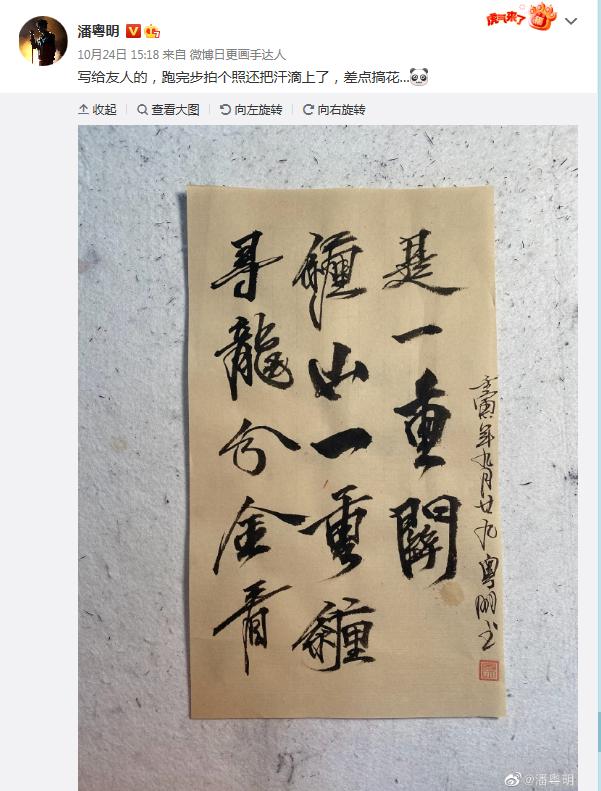 潘粤明
虎气来了
福
10月24日 15:18 来自 微博日更画手达人
写给友人的，跑完步拍个照还把汗滴上了，差点搞花...
收起 查看大图 向左旋转 向右旋转
尋龍分金看
纏山一重纏
是一重關
壬寅年九月廿九粤明书
@潘粤明